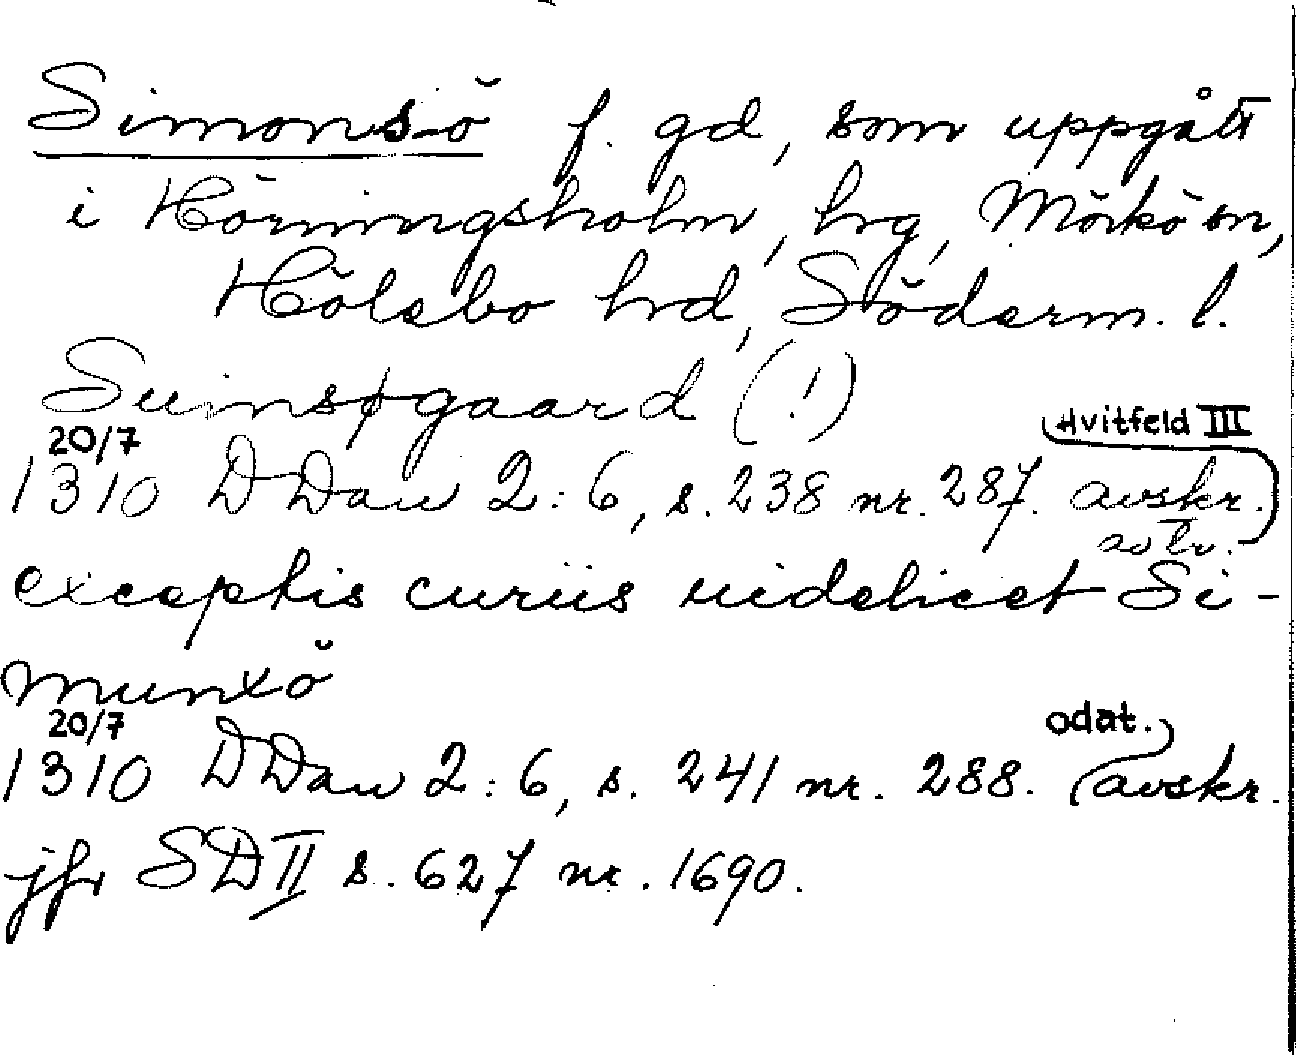 Simonsö f. gd, som uppgått
i Hörningsholm, hrg, Mörkö sn,
Hölebo hrd, Söderm. l.
Suimsøgaard (!)
20/7 Hvitfeld III
1310 DDan 2:6, s. 238 nr. 287. avskr.
exceptis curiis uidelicet Si-
munxö
20/7 odat.
1310 DDan 2:6, s. 241 nr. 288. (avskr.
jfr SD II s. 627 nr. 1690.